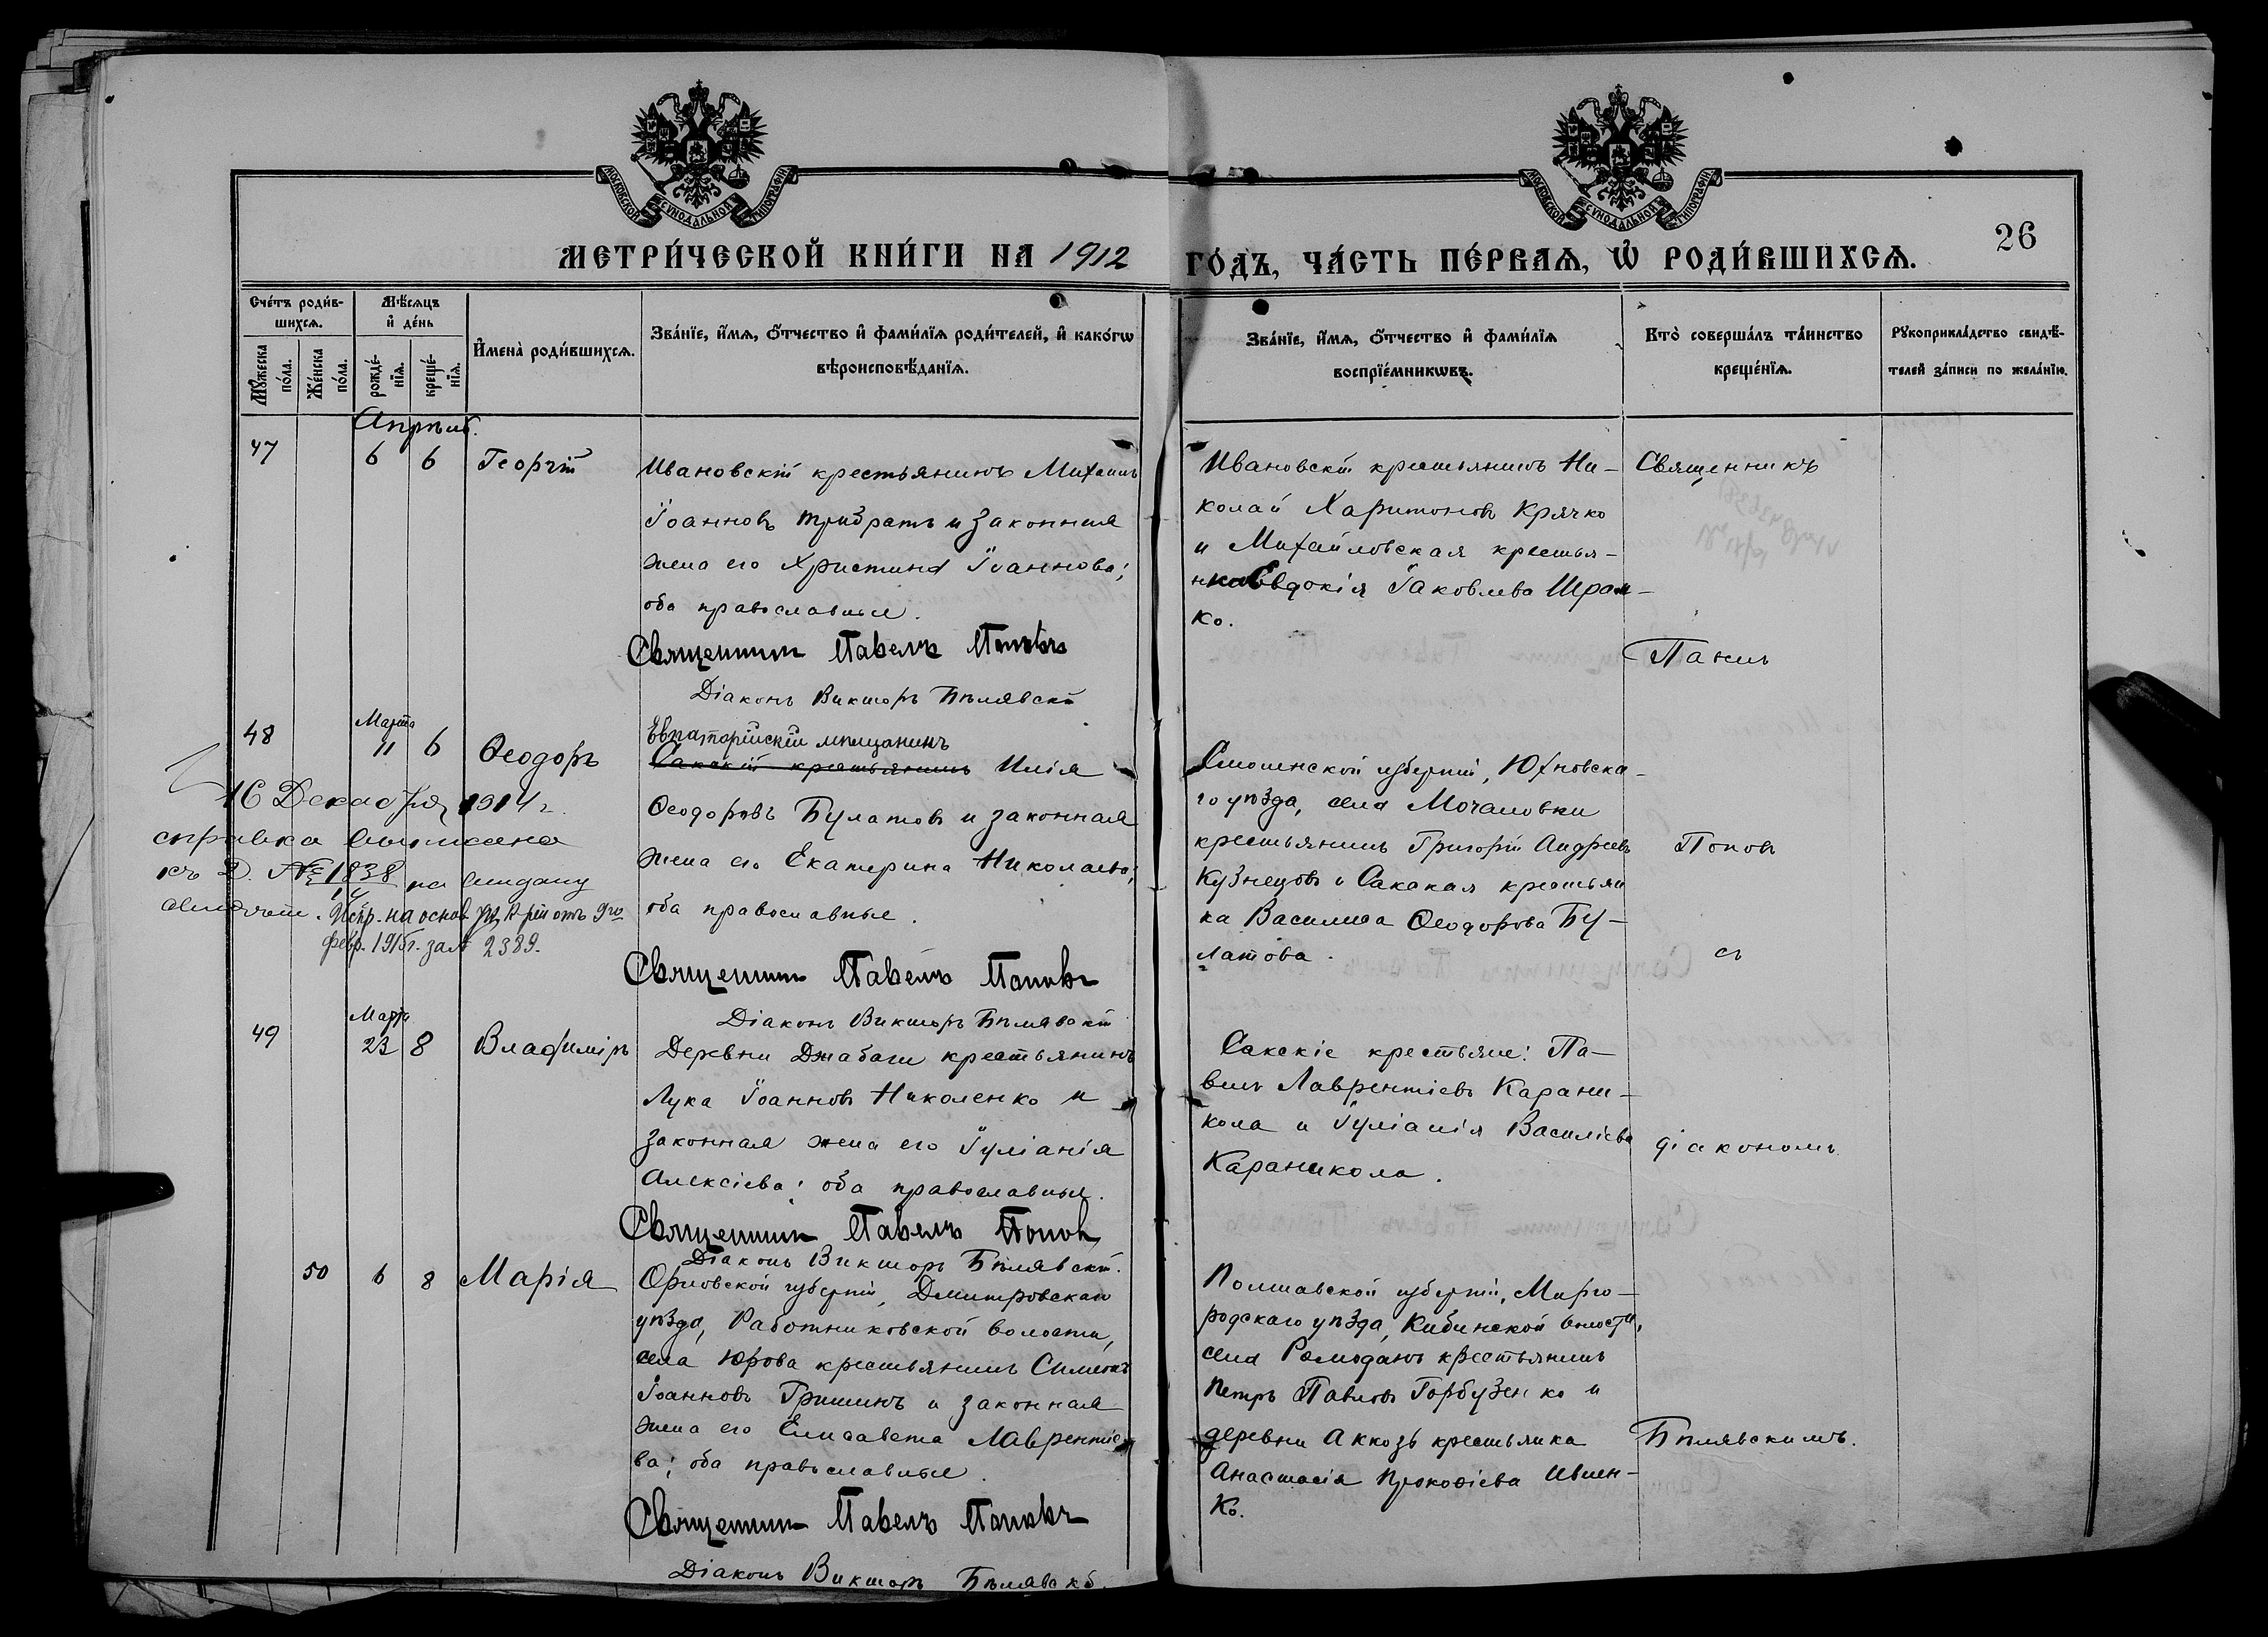 МОСКОВСКОЙ СѴНОДАЛЬНОЙ ТИПОГРАФІИ
МОСКОВСКОЙ СѴНОДАЛЬНОЙ ТИПОГРАФІИ
МЕТРИ́ЧЕСКОЙ КНИ́ГИ НА 1912 ГО́ДЪ, ЧА́СТЬ ПЕ́РВАѦ, Ѡ҆ РОДИ́ВШИХСѦ.
26
Сче́тъ роди́в-
шихсѧ.
Мѣ́сѧцъ
и҆ де́нь
Мꙋ́жеска
по́ла.
Же́нска
по́ла.
рожде́-
нїѧ.
креще́-
нїѧ.
И҆мена̀ роди́вшихсѧ.
Зва́нїе, и҆́мѧ, ѻ҆́тчество и҆ фами́лїѧ роди́телей, и҆ како́гѡ
вѣроисповѣ́данїѧ.
Зва́нїе, и҆́мѧ, ѻ҆́тчество и҆ фами́лїѧ
воспрїе́мникѡвъ.
Кто̀ соверша́лъ та́инство
креще́нїѧ.
Рꙋкоприкла́дство свидѣ́-
телей за́писи по жела́нїю.
Апрѣль.
47 6 6 Георгій
Ивановскій крестьянинъ Михаилъ
Іоанновъ Трибратъ и законная
жена его Христина Іоаннова;
оба православные.
Священникъ Павелъ Поповъ
Діаконъ Викторъ Бѣлявскій
Ивановскій крестьянинъ Ни-
колай Харитоновъ Крячко
и Михайловская крестья-
нка Евдокія Іаковлева Шрам-
ко.
Священникъ
Павелъ
48 Марта 11 6 Ѳеодоръ
Евпаторійскій мѣщанинъ
Сакскій крестьянинъ Илія
Ѳеодоровъ Булатовъ и законная
жена его Екатерина Николаева;
оба православные.
Священникъ Павелъ Поповъ
Діаконъ Викторъ Бѣлявскій
16 Декабря 1914 г.
справка
къ Д. № 1838
14
на выдачу
Испр. на основ. ук. отъ 9го
февр. 1915г. за № 2389.
Смоленской губерніи, Юхновска-
го уѣзда, села Мочаловки
крестьянинъ Григорій Андреевъ
Кузнецовъ и Сакская крестьян
ка Василиса Ѳеодорова Бу-
латова.
Поповъ
съ
49 Марта 23 8 Владиміръ
Деревни Джабачи крестьянинъ
Лука Іоанновъ Николенко и
законная жена его Іуліанія
Алексіева; оба православные.
Священникъ Павелъ Поповъ
Діаконъ Викторъ Бѣлявскій.
Сакскіе крестьяне: Па-
велъ Лаврентіевъ Карани-
кола и Іуліанія Василіева
Караникола.
діакономъ
50 6 8 Марія
Орловской губерніи, Дмитровскаго
уѣзда, Работниковской волости,
села Юрова крестьянинъ Симеонъ
Іоанновъ Гришинъ и законная
жена его Елисавета Лаврентіе
ва; оба православные.
Священникъ Павелъ Поповъ
Діаконъ Викторъ Бѣлявскій.
Полтавской губерніи, Мирго-
родскаго уѣзда, Кибинской волости,
села Ромоданъ крестьянинъ
Петръ Павловъ Горбузенко и
деревни Аккозъ крестьянка
Анастасія Прокофіева Ивщен-
ко.
Бѣлявскимъ.